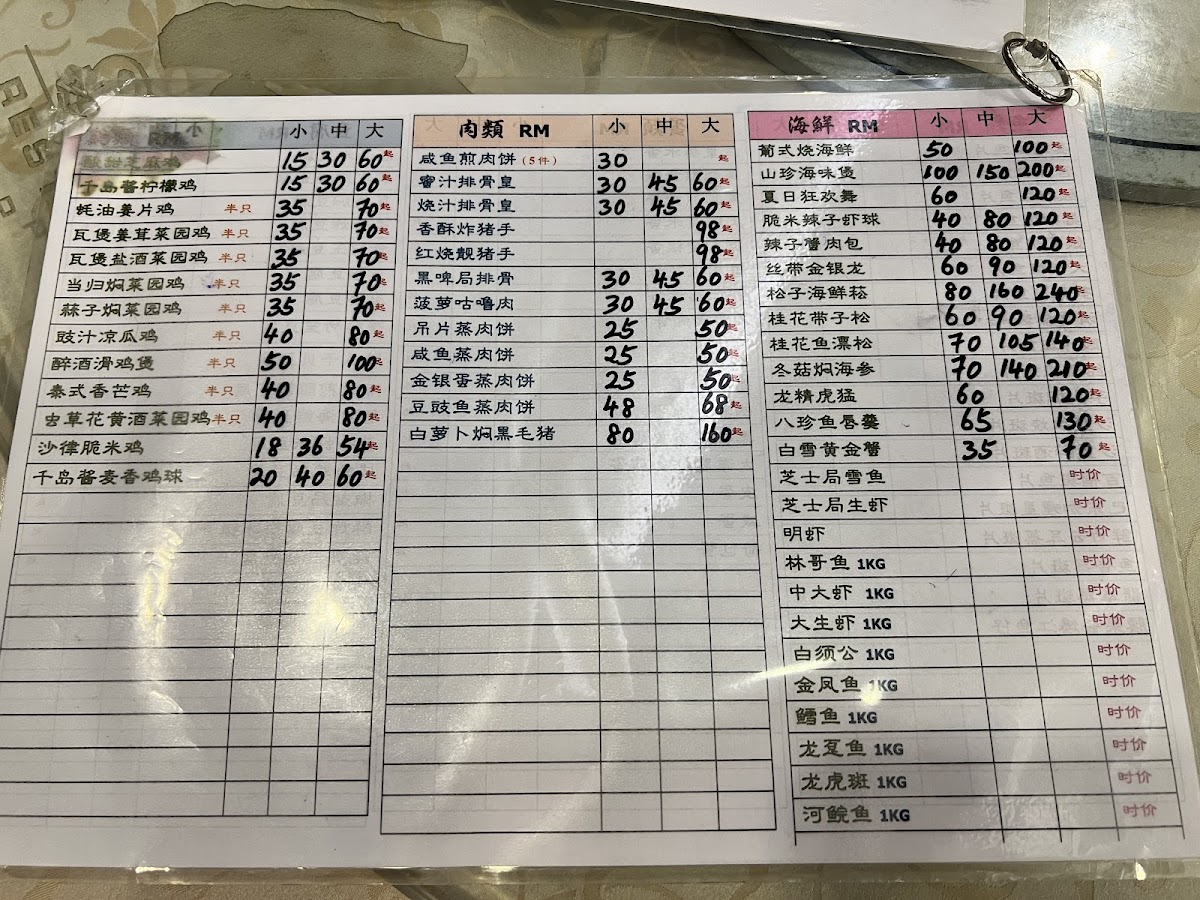 小 中 大
15 30 60起
千岛酱柠檬鸡 15 30 60起
蚝油姜片鸡 半只 35 70起
瓦煲姜茸菜园鸡 半只 35 70起
瓦煲盐酒菜园鸡 半只 35 70起
当归焖菜园鸡 半只 35 70起
蒜子焖菜园鸡 半只 35 70起
豉汁凉瓜鸡 半只 40 80起
醉酒滑鸡煲 半只 50 100起
泰式香芒鸡 半只 40 80起
虫草花黄酒菜园鸡 半只 40 80起
沙律脆米鸡 18 36 54起
千岛酱麦香鸡球 20 40 60起
肉類 RM 小 中 大
咸鱼煎肉饼 (5件) 30 起
蜜汁排骨皇 30 45 60起
烧汁排骨皇 30 45 60起
香酥炸猪手 98起
红烧靓猪手 98起
黑啤局排骨 30 45 60起
菠萝咕噜肉 30 45 60起
吊片蒸肉饼 25 50起
咸鱼蒸肉饼 25 50起
金银蛋蒸肉饼 25 50起
豆豉鱼蒸肉饼 48 68起
白萝卜焖黑毛猪 80 160起
海鲜 RM 小 中 大
葡式烧海鲜 50 100起
山珍海味煲 100 150 200起
夏日狂欢舞 60 120起
脆米辣子虾球 40 80 120起
辣子蟹肉包 40 80 120起
丝带金银龙 60 90 120起
松子海鲜菘 80 160 240起
桂花带子松 60 90 120起
桂花鱼漂松 70 105 140起
冬菇焖海参 70 140 210起
龙精虎猛 60 120起
八珍鱼唇羹 65 130起
白雪黄金蟹 35 70起
芝士局雪鱼 时价
芝士局生虾 时价
明虾 时价
林哥鱼 1KG 时价
中大虾 1KG 时价
大生虾 1KG 时价
白须公 1KG 时价
金凤鱼 1KG 时价
鳕鱼 1KG 时价
龙趸鱼 1KG 时价
龙虎斑 1KG 时价
河鲩鱼 1KG 时价